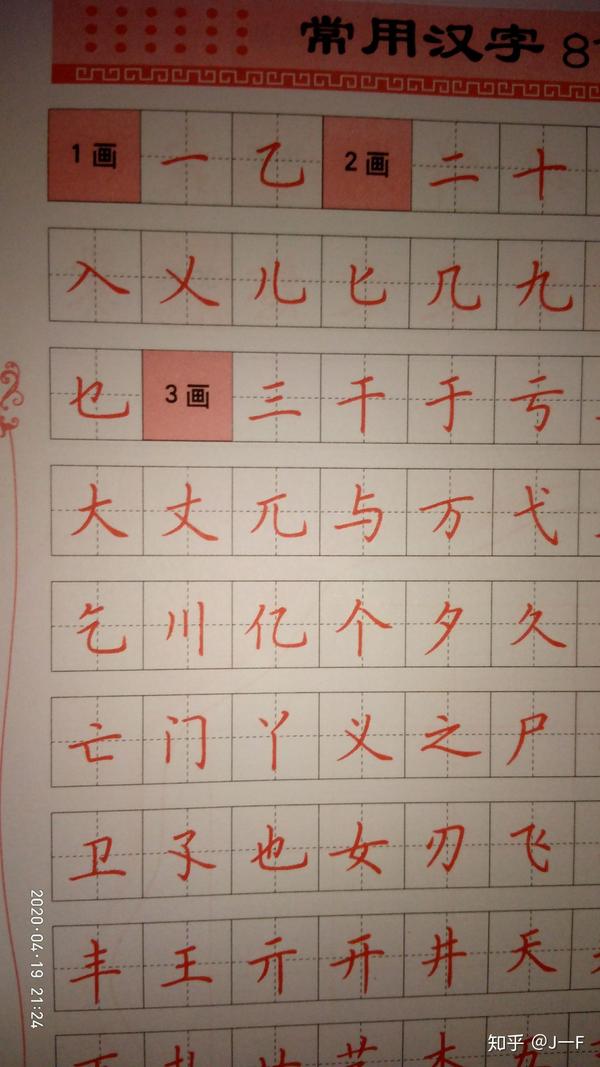 常用汉字 8
1画 一 乙 2画 二 十
入 乂 儿 匕 几 九
乜 3画 三 干 于 亏
大 丈 兀 与 万 弋
乞 川 亿 个 夕 久
亡 门 丫 义 之 尸
卫 孑 也 女 刃 飞
丰 王 亍 开 井 天
艺 木 五
2020·04·19 21:24
知乎 @J—F